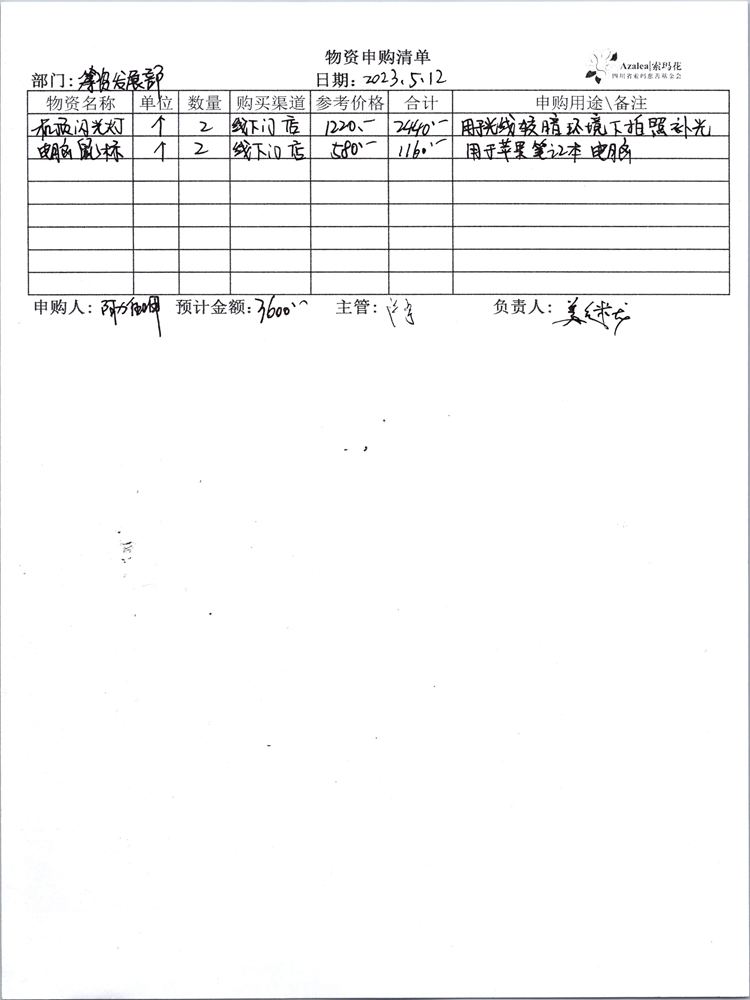 物资申购清单
Azalea|索玛花
四川省索玛慈善基金会
部门: 发展部 日期: 2023.5.12
物资名称 单位 数量 购买渠道 参考价格 合计 申购用途\备注
机顶闪光灯 个 2 线下门店 1220.— 2440.— 用于光线较暗环境下拍照补光
电脑鼠标 个 2 线下门店 580.— 1160.— 用于苹果笔记本电脑
申购人: 预计金额: 3600.— 主管: 负责人: